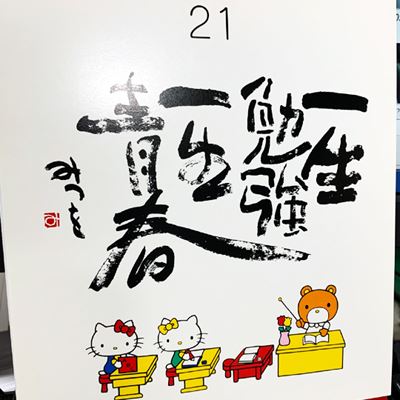 21
一生
勉強
一生
青春
みつを